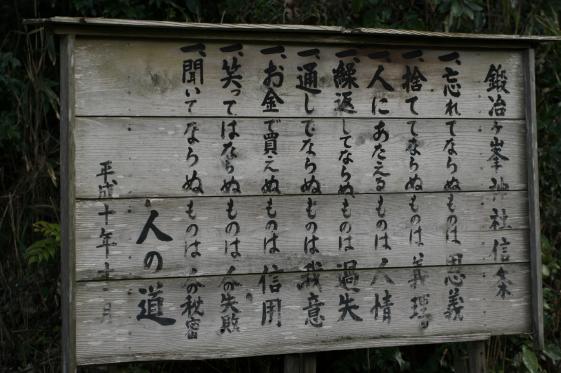 鍛冶ヶ峯神社信条
一、忘れてならぬものは恩義
一、捨ててならぬものは義理
一、人にあたえるものは人情
一、繰返してならぬものは過失
一、通してならぬものは我意
一、お金で買えぬものは信用
一、笑ってはならぬものは人の失敗
一、聞いてならぬものは人の秘密
人の道
平成十年十一月